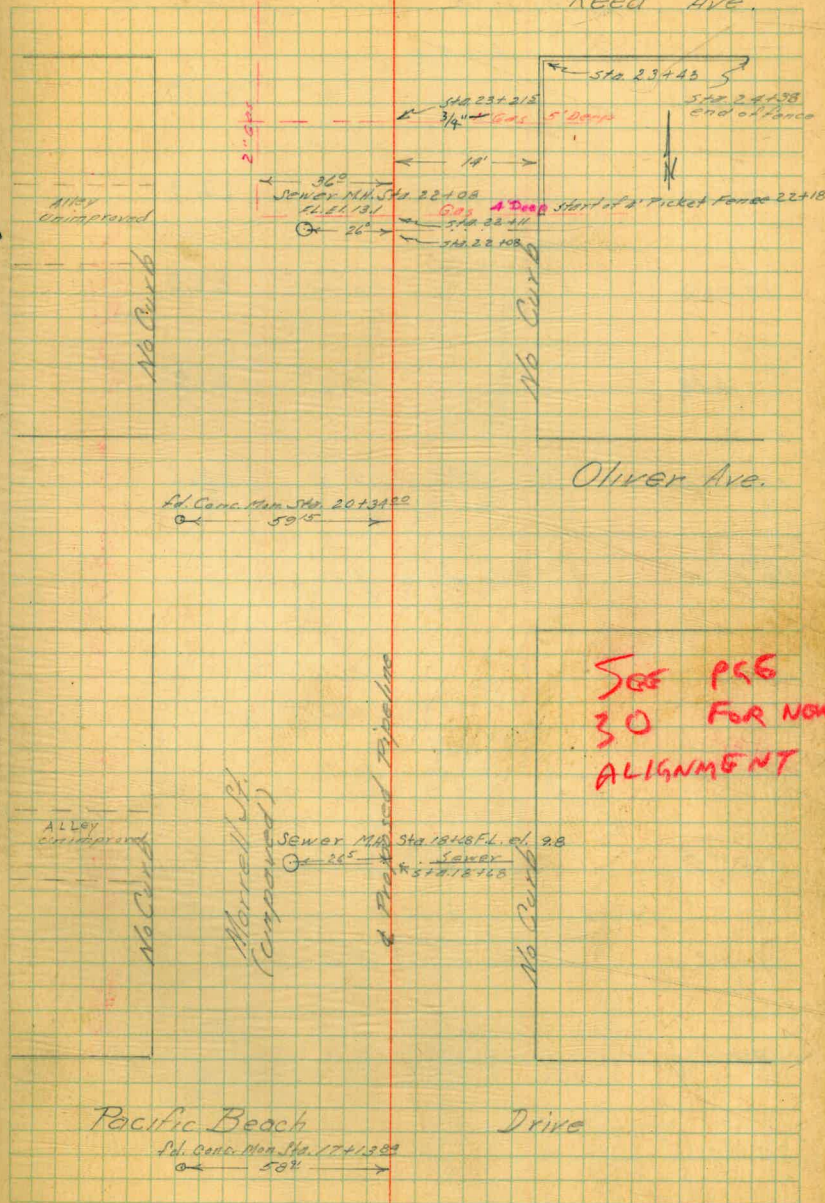 Reed Ave.
Sta. 23+43
Sta. 24+38
end of fence
Sta. 23+21⁵
3/4" Gas 5' Deep
2" Gas
14'
36⁰
Sewer M.H. Sta. 22+08
FL. EL. 13.1
Gas 4' Deep
Start of a Picket Fence 22+18
26⁰
Sta. 22+11
Sta. 22+08
Alley
Unimproved
No Curb
No Curb
Oliver Ave.
fd. Conc. Mon. Sta. 20+34⁰⁰
59¹⁵
SEE PGE
30 FOR NEW
ALIGNMENT
℄ Proposed Pipeline
Morrell St.
(Unpaved)
ALLEY
Unimproved
Sewer M.H. Sta. 18+68 F.L. el. 9.8
26⁵
Sewer
Sta. 18+68
No Curb
No Curb
Pacific Beach Drive
fd. Conc. Mon. Sta. 17+13⁸⁹